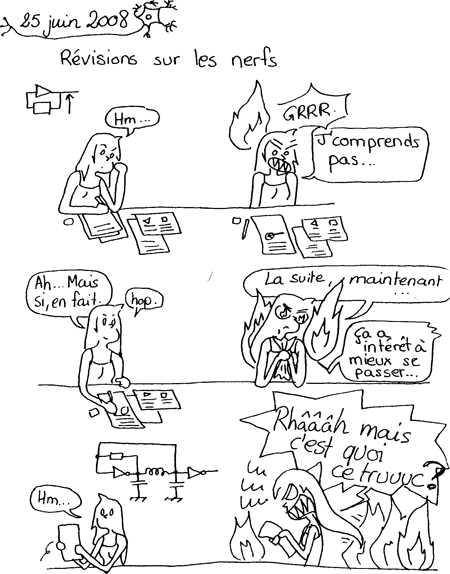 25 juin 2008
Révisions sur les nerfs
Hm...
GRRR.
J'comprends
pas...
Ah... Mais
si, en fait.
hop.
La suite, maintenant
...
Ça a
intérêt à
mieux se
passer...
Hm...
Rhâââh mais
c'est quoi
ce truuuc?